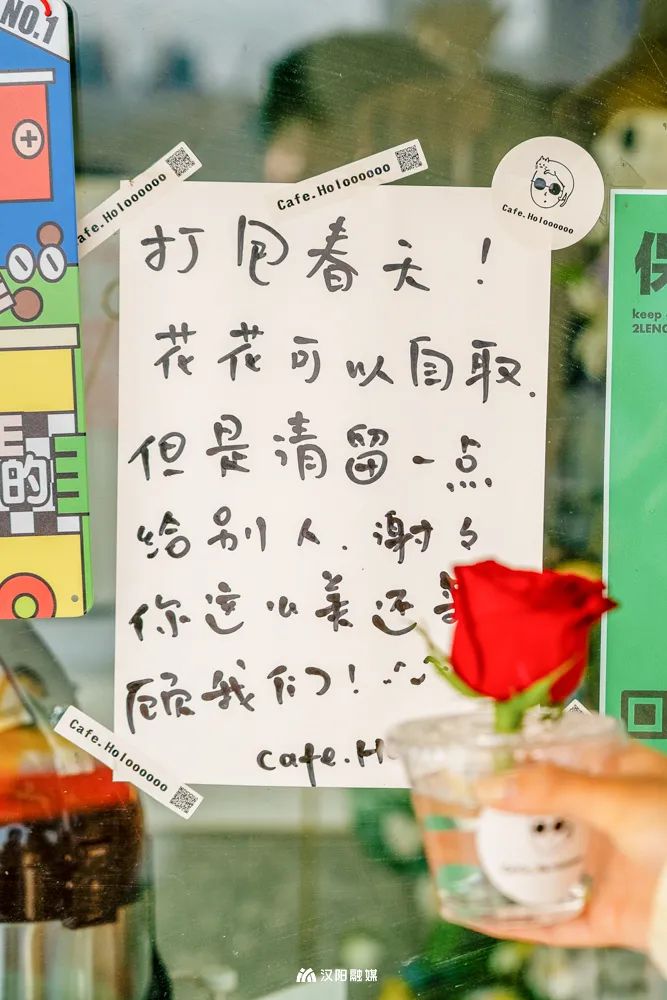 NO.1
Cafe.Holoooooo
Cafe.Holoooooo
打包春天！
花花可以自取.
但是清留一点
给别人.谢々
你这么美还
顾我们！^_^
cafe.H
的
keep
2LENG
Cafe.Holoooooo
汉阳融媒